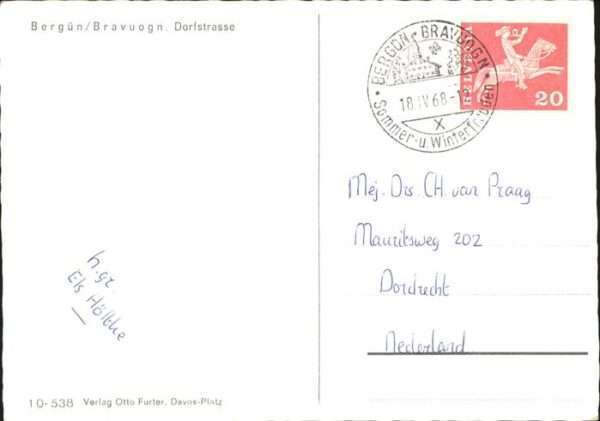 Bergün/Bravuogn. Dorfstrasse
BERGÜN · BRAVUOGN
18.IV.68-1
X
Sommer- u. Winterfreuden
HELVETIA
20
Mej. Drs. CH. van Praag
Mauritsweg 202
Dordrecht
Nederland
h.gr.
Els
10-538 Verlag Otto Furter, Davos-Platz